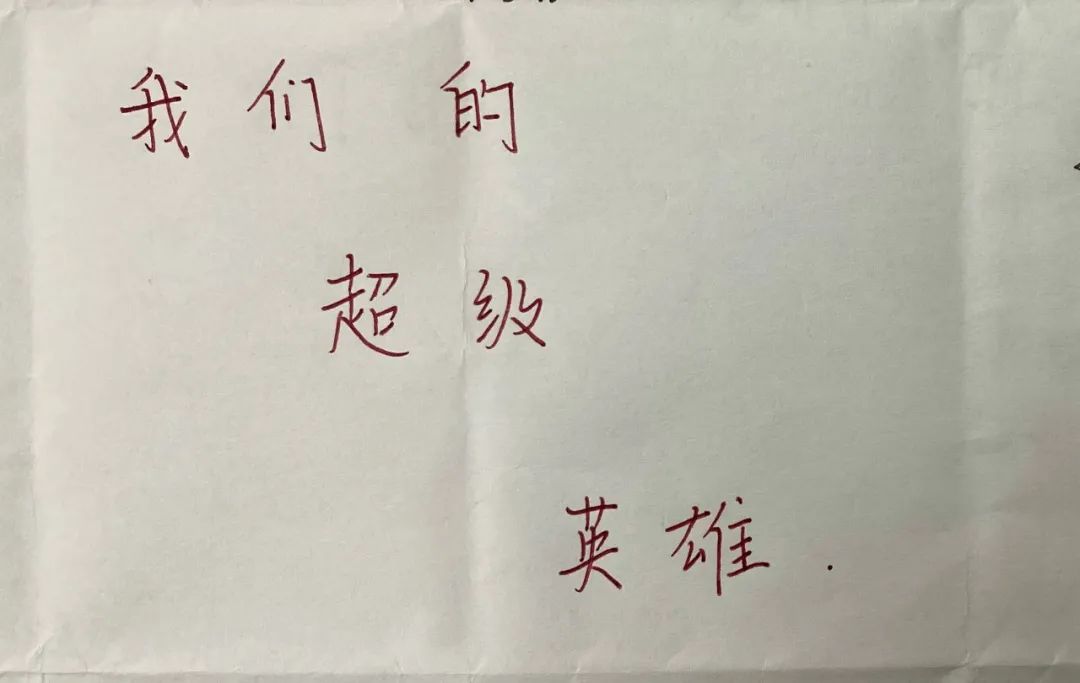 我们的
超级
英雄.